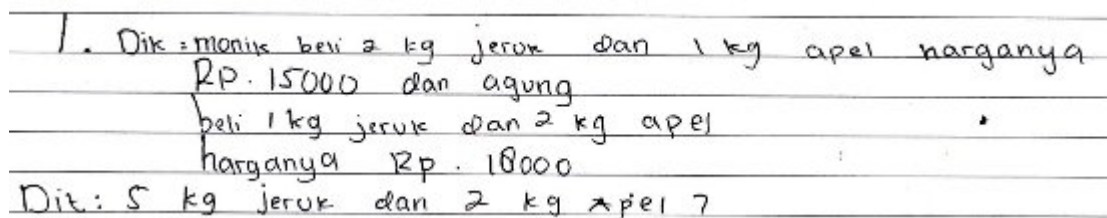 1. Dik : monik beli 2 kg jeruk dan 1 kg apel harganya
Rp. 15000 dan agung
beli 1 kg jeruk dan 2 kg apel
harganya Rp. 18000
Dit : 5 kg jeruk dan 2 kg Apel ?